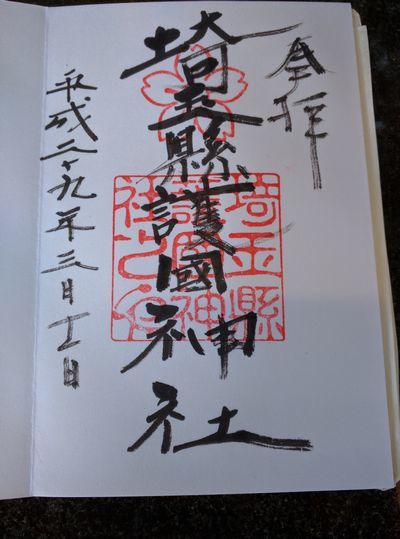 奉拝
埼玉縣護國神社
平成二十九年三月十一日
埼玉縣
護國神
社之印